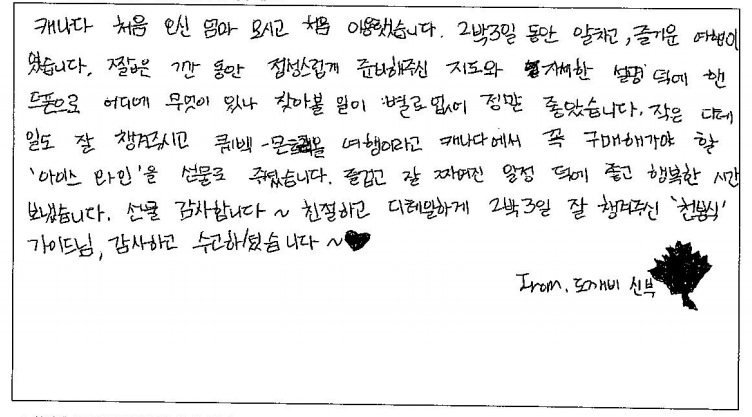 캐나다 처음 오신 엄마 모시고 처음 이용했습니다. 2박3일 동안 알차고, 즐거운 여행이
었습니다. 짧은 기간 동안 정성스럽게 준비해주신 지도와 자세한 설명 덕에 핸
드폰으로 어디에 무엇이 있나 찾아볼 일이 별로 없어 정말 좋았습니다. 작은 디테
일도 잘 챙겨주시고 퀘백-몬트리올 여행이라고 캐나다에서 꼭 구매해가야 할
'아이스 와인'을 선물로 주셨습니다. 즐겁고 잘 짜여진 일정 덕에 좋고 행복한 시간
보냈습니다. 선물 감사합니다~ 친절하고 디테일하게 2박3일 잘 챙겨주신 '천봉식'
가이드님, 감사하고 수고하셨습니다~♥
From. 도깨비 신부